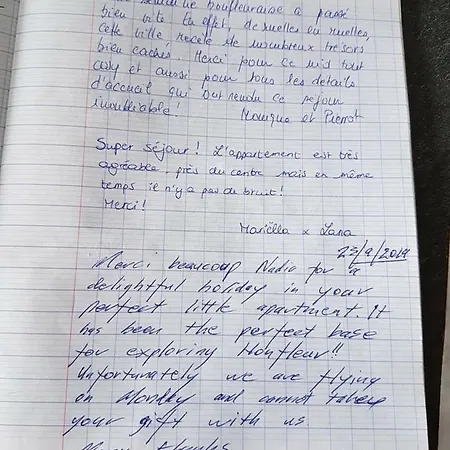 semaine honfleuraise a passé
bien vite en effet. De ruelles en ruelles,
cette ville recèle de nombreux trésors
bien cachés. Merci pour ce nid tout
cosy et aussi pour tous les détails
d'accueil qui ont rendu ce séjour
inoubliable! Monique et Pierrot
Super séjour! L'appartement est très
agréable, près du centre mais en même
temps il n'y a pas de bruit!
Merci!
Mariëlla x Lana
23/9/2019
Merci beaucoup Nadia for a
delightful holiday in your
perfect little apartment. It
has been the perfect base
for exploring Honfleur!!
Unfortunately we are flying
on Monday and cannot take
your gift with us.